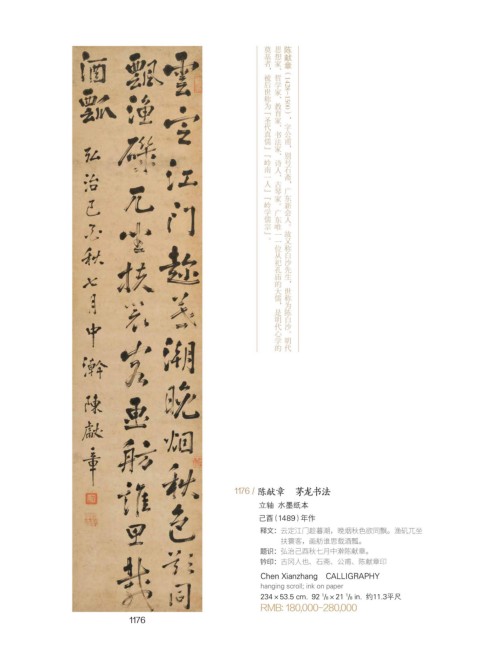 雲定江门趂暮潮晚烟秋色欲同
飄漁磯兀坐扶衰客画舫誰思载
酒瓢
弘治己酉秋七月中澣陳獻章
陈献章（1428-1500），字公甫，别号石斋，广东新会人，故又称白沙先生，世称为陈白沙。明代
思想家、哲学家、教育家、书法家、诗人、古琴家，广东唯一一位从祀孔庙的大儒，是明代心学的
奠基者，被后世称为“圣代真儒”“岭南一人”
1176 / 陈献章 茅龙书法
立轴 水墨纸本
己酉（1489）年作
释文：云定江门趁暮潮，晚烟秋色欲同飘。渔矶兀坐
扶衰客，画舫谁思载酒瓢。
题识：弘治己酉秋七月中澣陈献章。
钤印：古冈人也、石斋、公甫、陈献章印
Chen Xianzhang CALLIGRAPHY
hanging scroll; ink on paper
234×53.5 cm. 92 1/8×21 1/8 in. 约11.3平尺
RMB: 180,000-280,000
1176